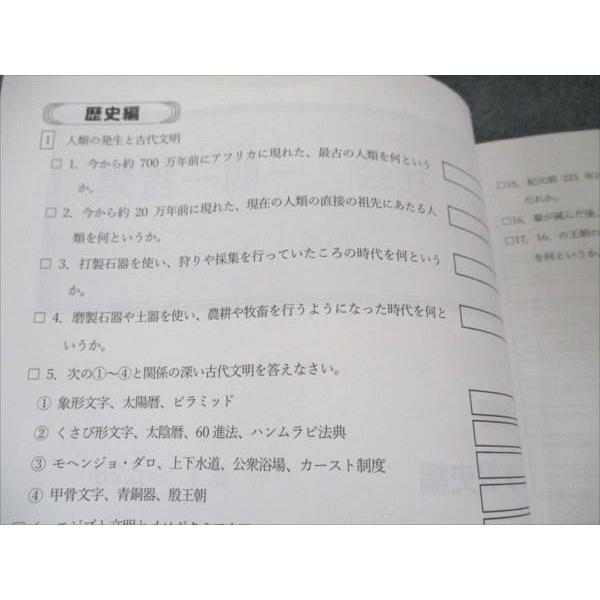 歴史編
1 人類の発生と古代文明
□ 1. 今から約 700 万年前にアフリカに現れた、最古の人類を何という
か。
□ 2. 今から約 20 万年前に現れた、現在の人類の直接の祖先にあたる人
類を何というか。
□ 3. 打製石器を使い、狩りや採集を行っていたころの時代を何という
か。
□ 4. 磨製石器や土器を使い、農耕や牧畜を行うようになった時代を何と
いうか。
□ 5. 次の①～④と関係の深い古代文明を答えなさい。
① 象形文字、太陽暦、ピラミッド
② くさび形文字、太陰暦、60進法、ハンムラビ法典
③ モヘンジョ・ダロ、上下水道、公衆浴場、カースト制度
④ 甲骨文字、青銅器、殷王朝
□15. 紀元前 221 年に
だれか。
□16. 秦が滅んだ後、
□17. 16. の王朝の
を何というか。